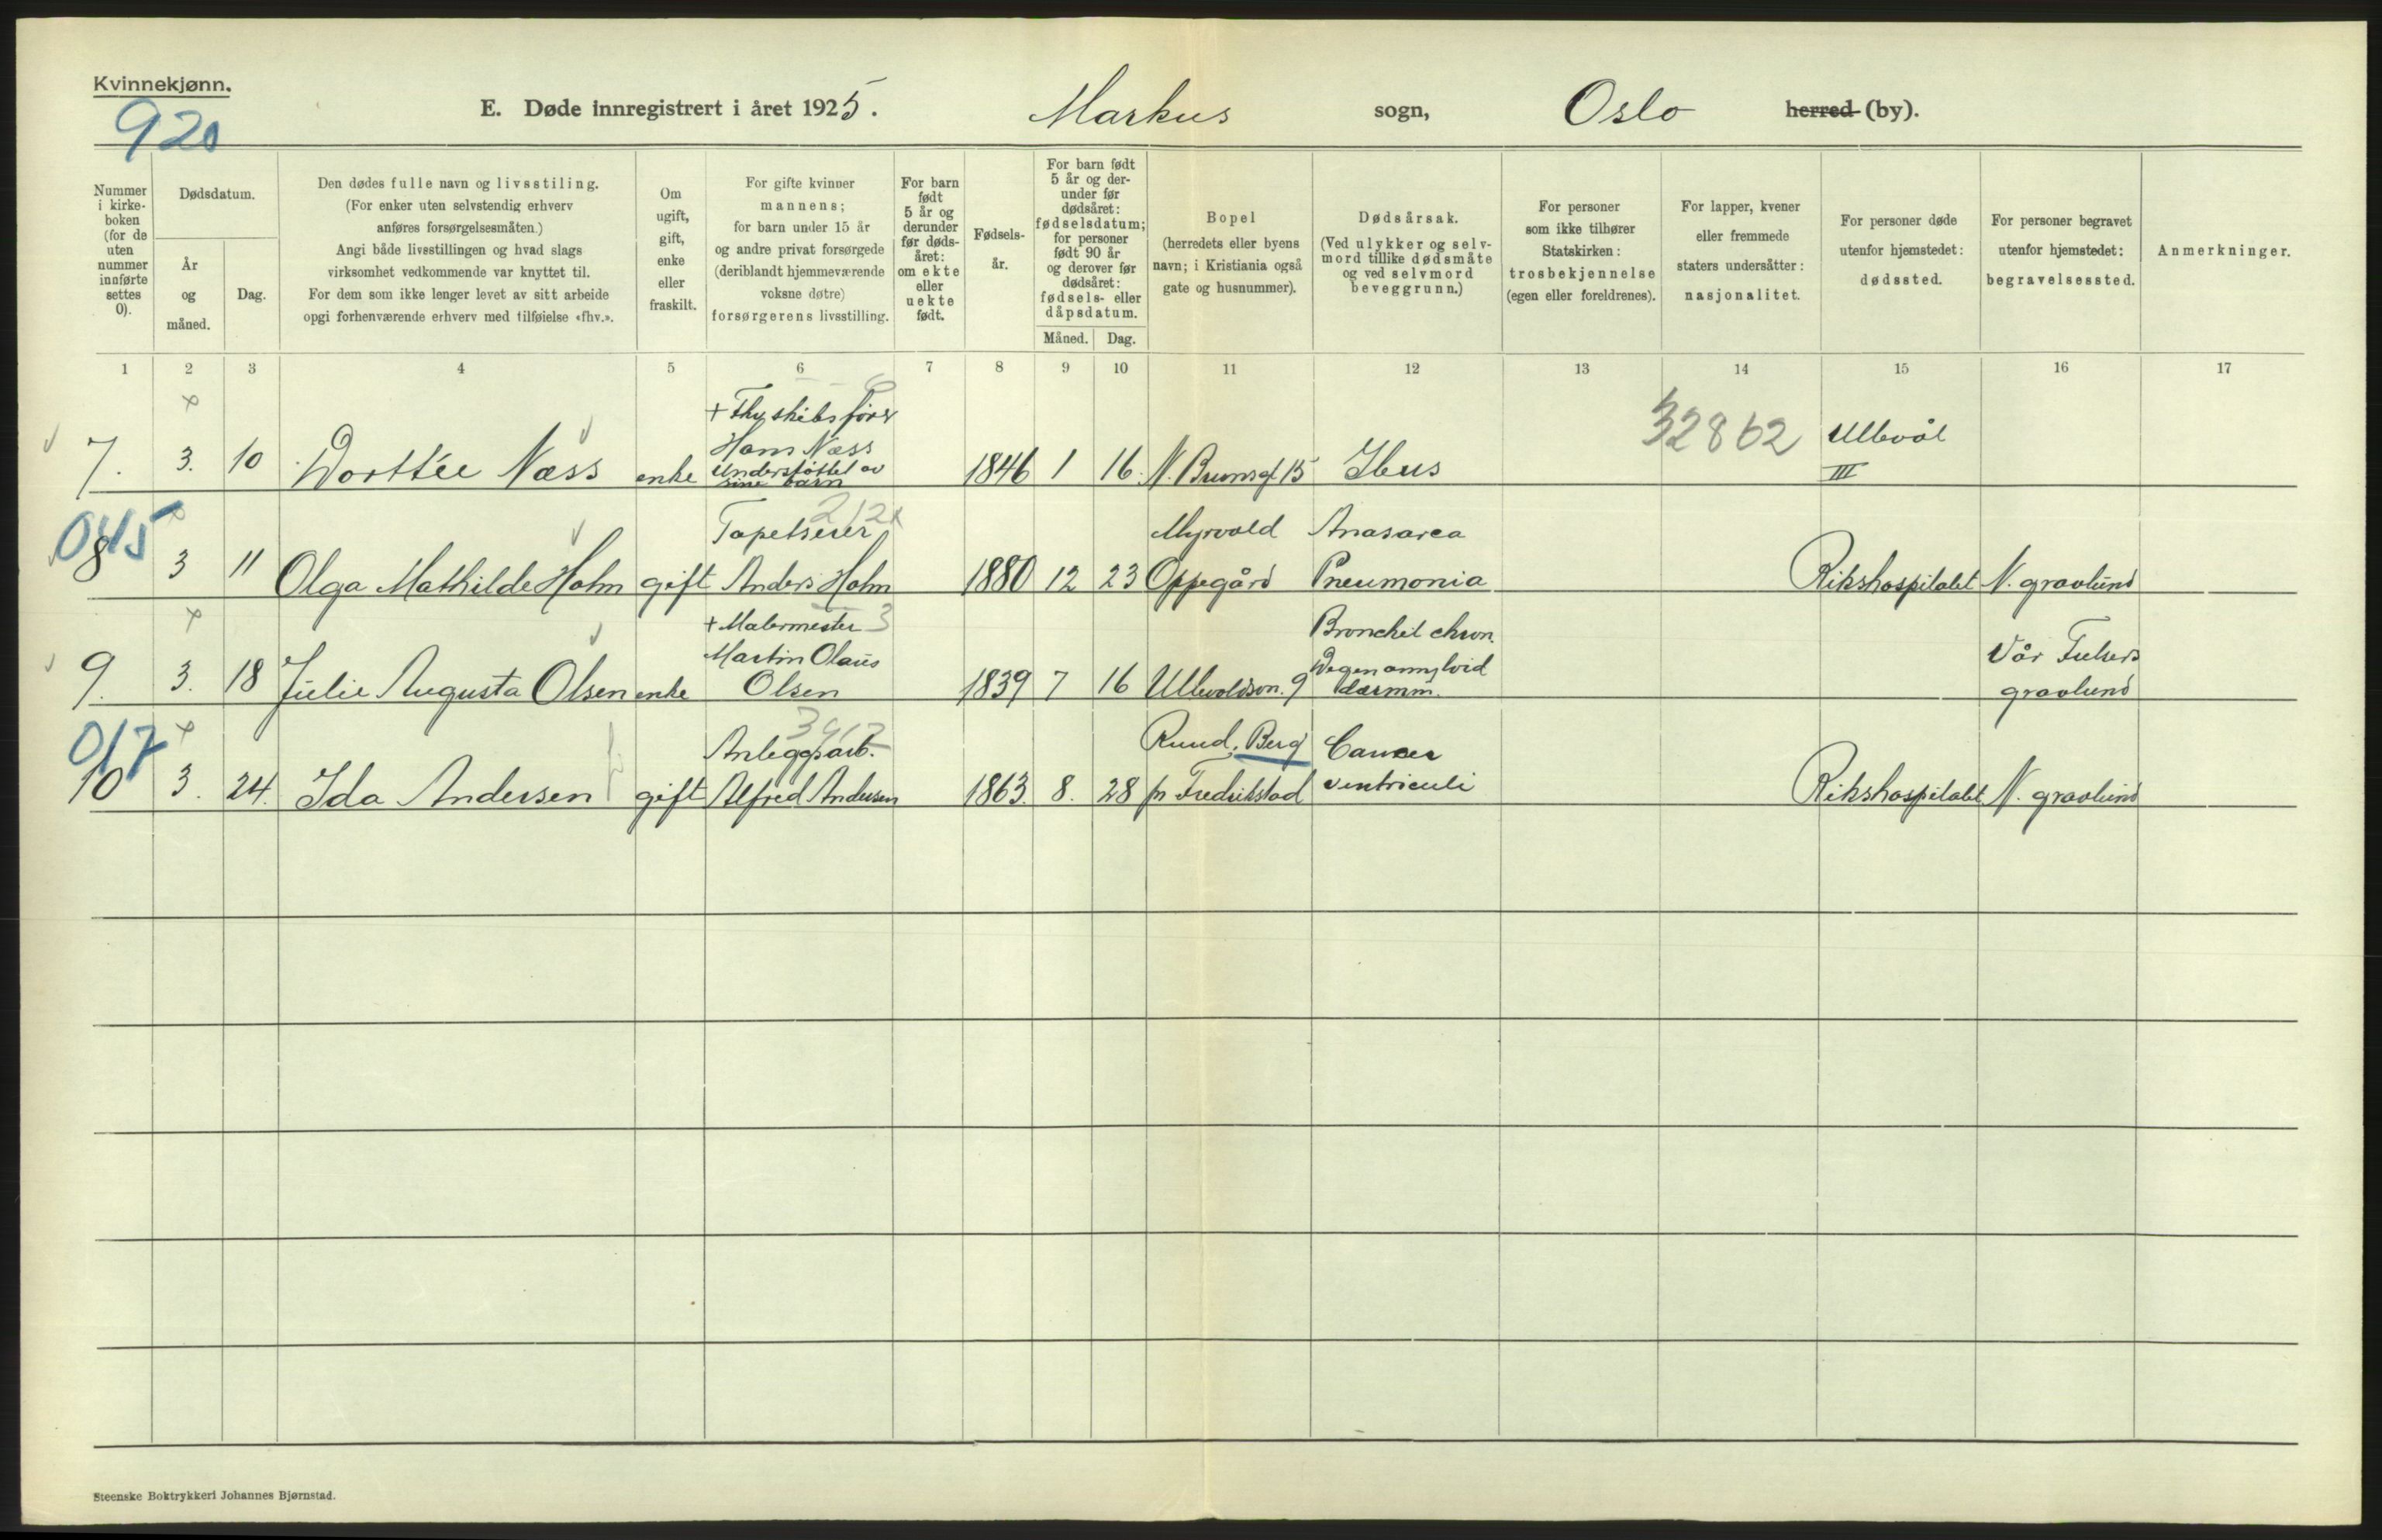 Kvinnekjønn.
920
E. Døde innregistrert i året 1925. Markus sogn, Oslo herred (by).
Nummer i kirkeboken (for de uten nummer innførte settes 0).
Dødsdatum.
År og måned.
Dag.
Den dødes fulle navn og livsstiling.
(For enker uten selvstendig erhverv
anføres forsørgelsesmåten.)
Angi både livsstillingen og hvad slags
virksomhet vedkommende var knyttet til.
For dem som ikke lenger levet av sitt arbeide
opgi forhenværende erhverv med tilføielse «fhv.».
Om
ugift,
gift,
enke
eller
fraskilt.
For gifte kvinner
mannens;
for barn under 15 år
og andre privat forsørgede
(deriblandt hjemmeværende
voksne døtre)
forsørgerens livsstilling.
For barn
født
5 år og
derunder
før døds-
året:
om ekte
eller
uekte
født.
Fødsels-
år.
For barn født
5 år og der-
under før
dødsåret:
fødselsdatum;
for personer
født 90 år
og derover før
dødsåret:
fødsels- eller
dåpsdatum.
Måned. Dag.
Bopel
(herredets eller byens
navn; i Kristiania også
gate og husnummer).
Dødsårsak.
(Ved ulykker og selv-
mord tillike dødsmåte
og ved selvmord
beveggrunn.)
For personer
som ikke tilhører
Statskirken:
trosbekjennelse
(egen eller foreldrenes).
For lapper, kvener
eller fremmede
staters undersåtter:
nasjonalitet.
For personer døde
utenfor hjemstedet:
dødssted.
For personer begravet
utenfor hjemstedet:
begravelsessted.
Anmerkninger.
1 2 3 4 5 6 7 8 9 10 11 12 13 14 15 16 17
7. 3. 10 Dorttée Næss enke
Hans Næss
Understøttet av
sine barn
1846 1 16. N. Brunsgt 15 Ileus
32862
Ullevål
III
0415
8 3 11 Olga Mathilde Holm gift
Tapetserer
Anders Holm
1880 12 23
Myrvold
Oppegård
Anasarca
Pneumonia
Rikshospitalet N. gravlund
9. 3. 18 Julie Augusta Olsen enke
+ Malermester
Martin Olaus
Olsen
1839 7 16 Ullevoldsvn. 9
Bronchit chron.
Degen amyloid
darmm.
Vår Frelsers
gravlund
017
10 3. 24. Ida Andersen gift
Anleggsarb.
Alfred Andersen
1863. 8. 28
Ruud, Berg
pr Fredrikstad
Cancer
ventriculi
Rikshospitalet N. gravlund
Steenske Boktrykkeri Johannes Bjørnstad.